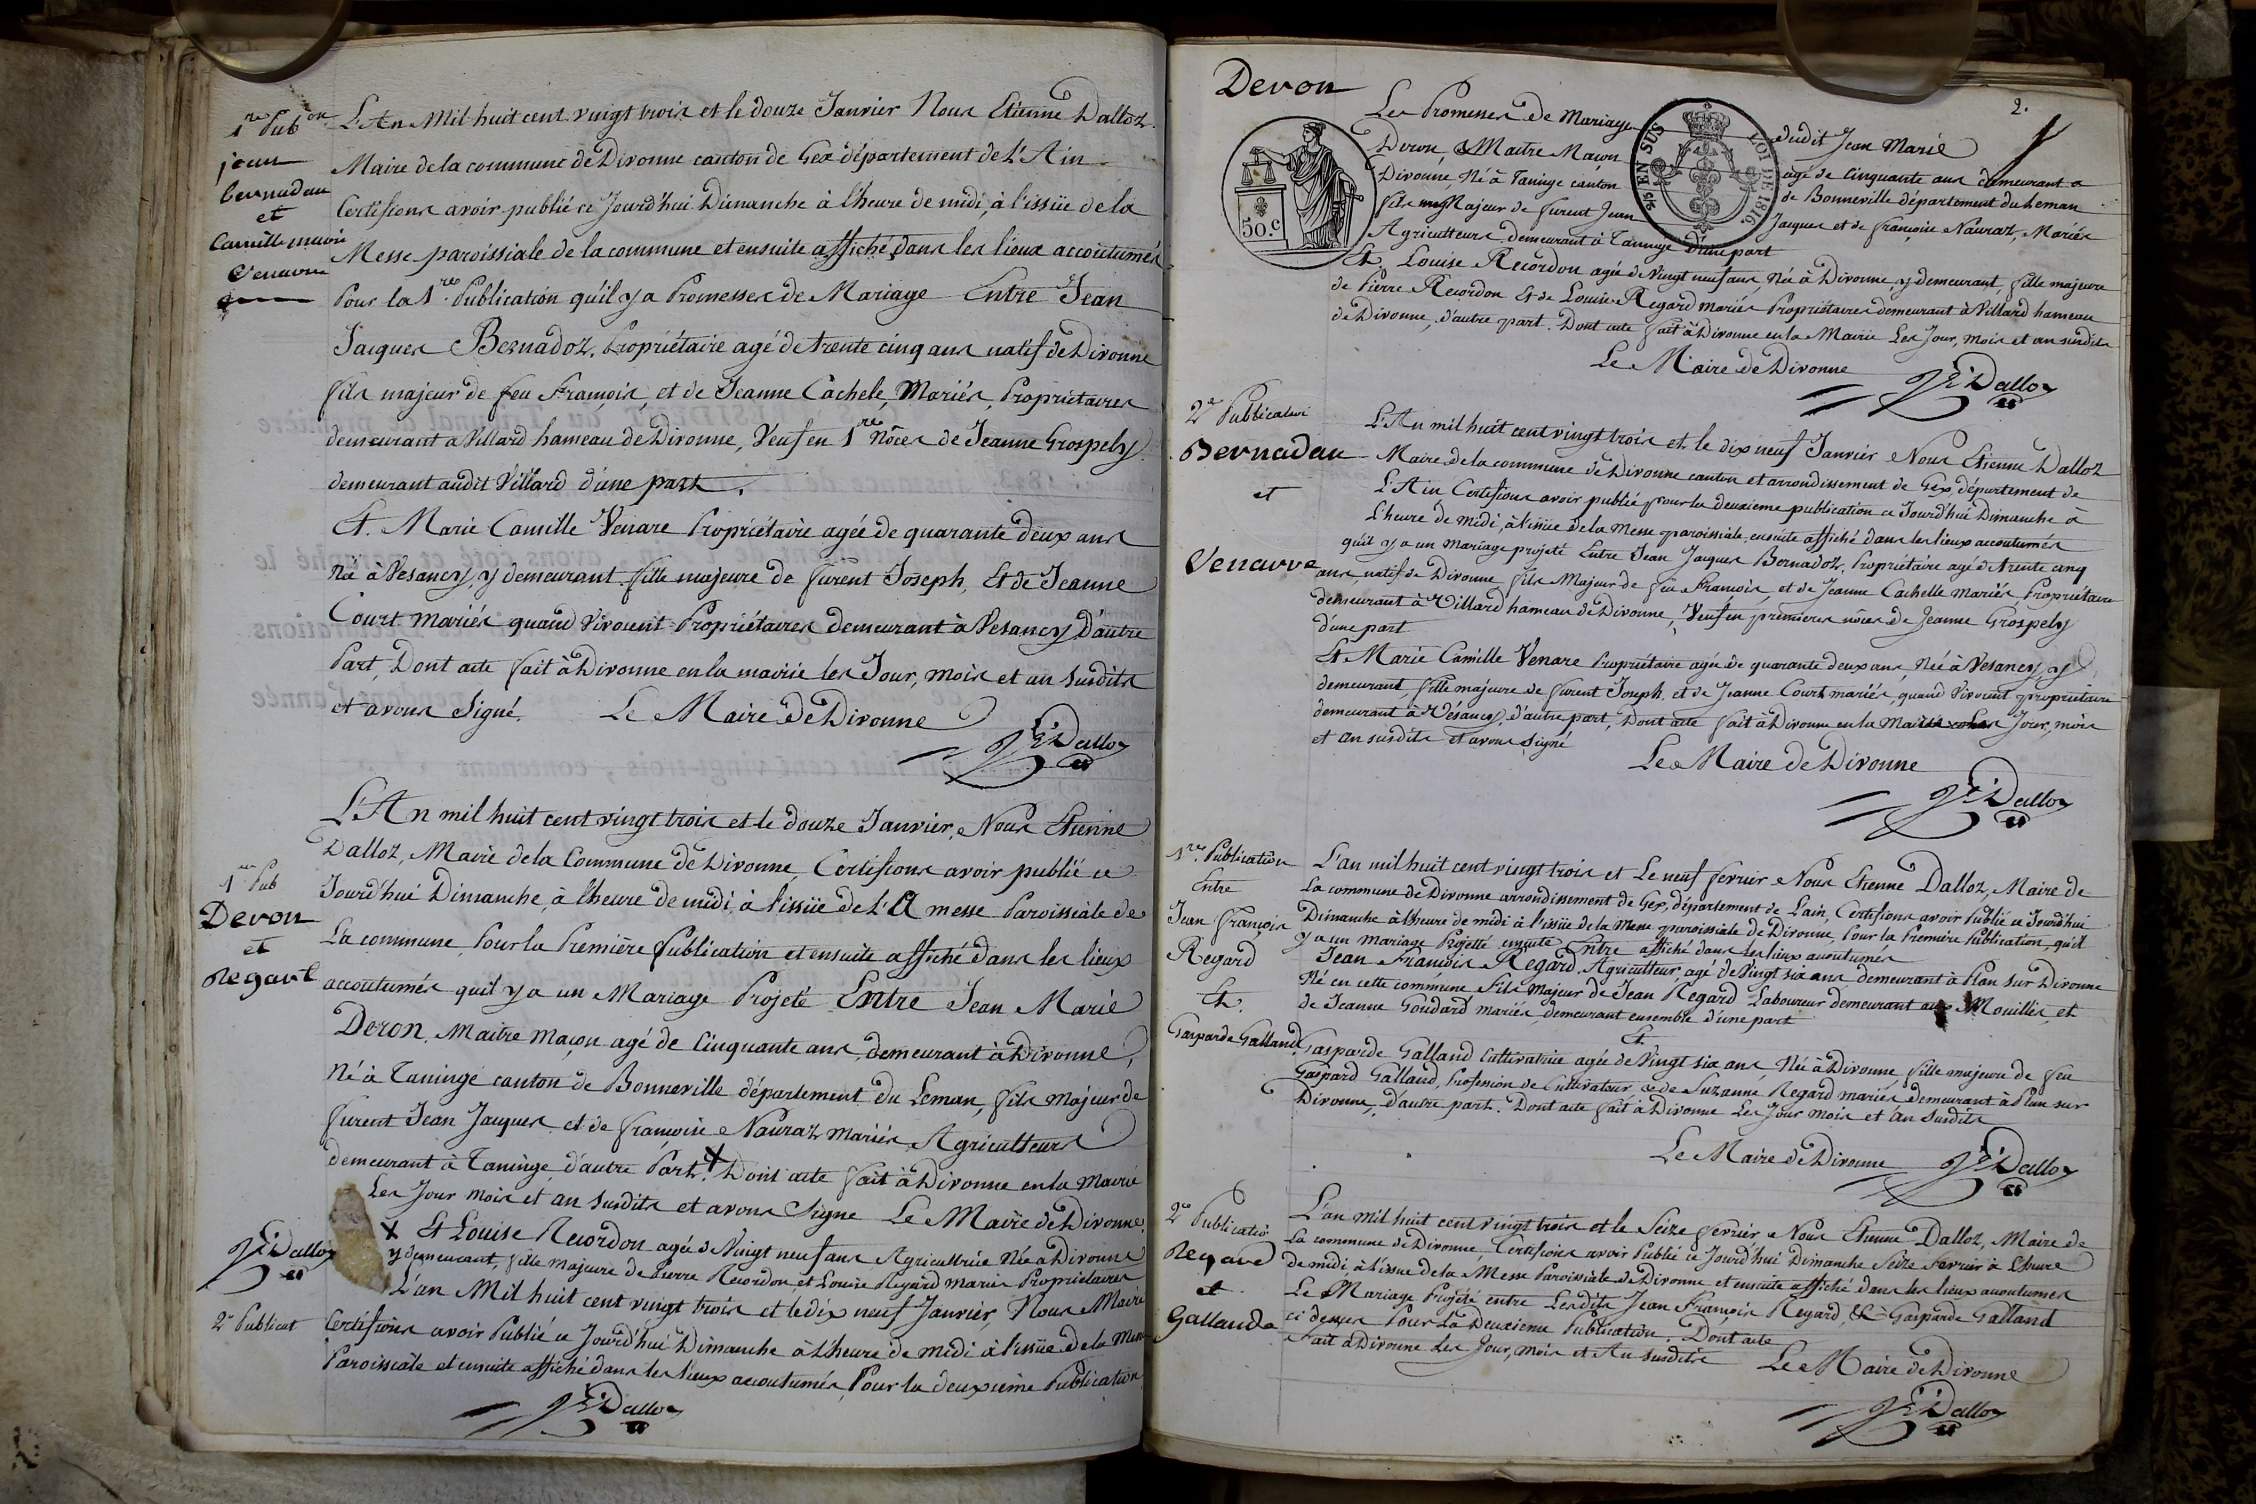 1re Pubon
jean
bernadau
et
Camille marie
Venarre
L'An Mil huit cent vingt trois et le douze Janvier Nous Etienne Dalloz
Maire de la commune de Divonne canton de Gex département de L'Ain
Certifions avoir publié ce Jourd'hui Dimanche à l'heure de midi, à l'issüe de la
Messe paroissiale de la commune et ensuite affiché dans les lieux accoutumés
Pour la 1re Publication qu'il y a Promesses de Mariage Entre Jean
Jacques Bernadoz, Propriétaire agé de trente cinq ans natif de Divonne
fils majeur de feu François, et de Jeanne Cachele, Mariés, Propriétaires
demeurant a Villard hameau de Divonne, Veuf en 1re Nôces de Jeanne Grospely
demeurant audit Villard d'une part.
Et Marie Camille Venare Propriétaire agée de quarante deux ans
Née à Vesancy, y demeurant fille majeure de furent Joseph, Et de Jeanne
Court mariés quand Vivoient Propriétaires demeurant à Vesancy D'autre
Part, Dont acte fait à Divonne en la mairie les Jour, mois et an susdits
et avons Signé. Le Maire de Divonne
E Dalloz
1re Pub
Devon
et
Regart
L'An mil huit cent vingt trois et le douze Janvier, Nous Etienne
Dalloz, Maire de la Commune de Divonne, Certifions avoir publié ce
Jourd'hui Dimanche, à l'heure de midi, à l'issüe de L'A messe Paroissiale de
La commune, Pour la Première Publication et ensuite affiché dans les lieux
accoutumés qu'il y a un Mariage Projeté Entre Jean Marie
Deron, Maitre Maçon agé de Cinquante ans, demeurant à Divonne,
Né à Taninge canton de Bonneville département du Leman, fils majeur de
furent Jean Jacques et de françoise Nauraz mariés Agriculteurs
demeurant à Taninge, d'autre Part X Dont acte fait à Divonne en la Mairie
Les Jour mois et an susdits et avons Signe Le Maire de Divonne
E Dalloz
X Et Louise Recordon agée de Vingt neuf ans Agricultrice Née à Divonne
y demeurant, fille majeure de Pierre Recordon, et Louise Regard mariés Propriétaires
2e Publicat
L'an Mil huit cent vingt trois et le dix neuf Janvier, Nous Maire
Certifions avoir Publié ce Jourd'hui Dimanche à L'heure de midi à l'issüe de la Messe
Paroissiale et ensuite affiché dans les lieux accoutumés, Pour la deuxième Publication
E Dalloz
Devon
2.
50.c
EN SUS
LOI DE 1816
Les Promesses de Mariage dudit Jean Marie
Deron, Maitre Maçon agé de Cinquante ans demeurant a
Divonne, Né à Taninge canton de Bonneville département du Leman
fils Majeur de furent Jean Jacques et de françoise Nauraz, Mariés
Agriculteurs demeurant à Taninge D'une part
Et Louise Recordon agée de Vingt neuf ans, Née à Divonne, y demeurant, fille majeure
de Pierre Recordon Et de Louise Regard mariés Propriétaires demeurant à Villard hameau
de Divonne, d'autre part. Dont acte fait à Divonne en la Mairie Les Jour, mois et an susdits
Le Maire de Divonne
E Dalloz
2e Publication
Bernadau
et
Venarre
L'An mil huit cent vingt trois et le dix neuf Janvier Nous Etienne Dalloz
Maire de la commune de Divonne canton et arrondissement de Gex, département de
L'Ain Certifions avoir publié pour la deuxieme publication ce Jourd'hui Dimanche à
L'heure de midi, à l'issüe de la Messe paroissiale, ensuite affiché dans les lieux accoutumés
qu'il y a un mariage projeté Entre Jean Jacques Bernadoz, Propriétaire agé de trente cinq
ans natif de Divonne, fils Majeur de feu François, et de Jeanne Cachelle mariés, Propriétaire
demeurant à Villard hameau de Divonne, Veuf en premieres nôces de Jeanne Grospely
d'une part
Et Marie Camille Venare Propriétaire agée de quarante deux ans, Née à Vesancy, y
demeurant, fille majeure de furent Joseph, et de Jeanne Court mariés, quand Vivoient propriétaire
demeurant à Vésancy, d'autre part, Dont acte fait à Divonne en la Mairie Les Jour, mois
et an susdits et avons signé
Le Maire de Divonne
E Dalloz
1re Publication
Entre
Jean françois
Regard
Et.
Gasparde Galland.
L'an mil huit cent vingt trois et Le neuf fevrier Nous Etienne Dalloz, Maire de
La commune de Divonne arrondissement de Gex, département de L'ain, Certifions avoir Publié ce Jourd'hui
Dimanche à l'heure de midi à l'issüe de la Messe paroissiale de Divonne, Pour la Premiere Publication, qu'il
y a un mariage Projetté ensuite affiché dans les lieux accoutumés Entre
Jean François Regard, Agriculteur, agé de Vingt six ans demeurant à Plan sur Divonne
Né en cette commune fils Majeur de Jean Regard Laboureur demeurant aux Mouilles, et
de Jeanne Goudard mariés, demeurant ensemble d'une part
Et
Gasparde Galland Cultivatrice agée de Vingt six ans, Née à Divonne, fille majeure de feu
Gaspard Galland, Profession de Cultivateur, & de Suzanne Regard mariés demeurant à Plan sur
Divonne, d'autre part. Dont acte fait à Divonne Les Jour mois et an Susdits
Le Maire de Divonne E Dalloz
2e Publicatio
Regard
et
Gallande
L'an mil huit cent vingt trois et le Seize fevrier, Nous Etienne Dalloz, Maire de
La commune de Divonne, Certifions avoir Publié ce Jourd'hui Dimanche Seize Fevrier à L'heure
de midi à l'issue de la Messe Paroissiale de Divonne et ensuite affiché dans les lieux accoutumes
Le Mariage Projeté entre Lesdits Jean François Regard, & Gasparde Galland
ci dessus Pour La Deuxieme Publication. Dont acte
Fait à Divonne Les Jour, mois et An susdits Le Maire de Divonne
E Dalloz